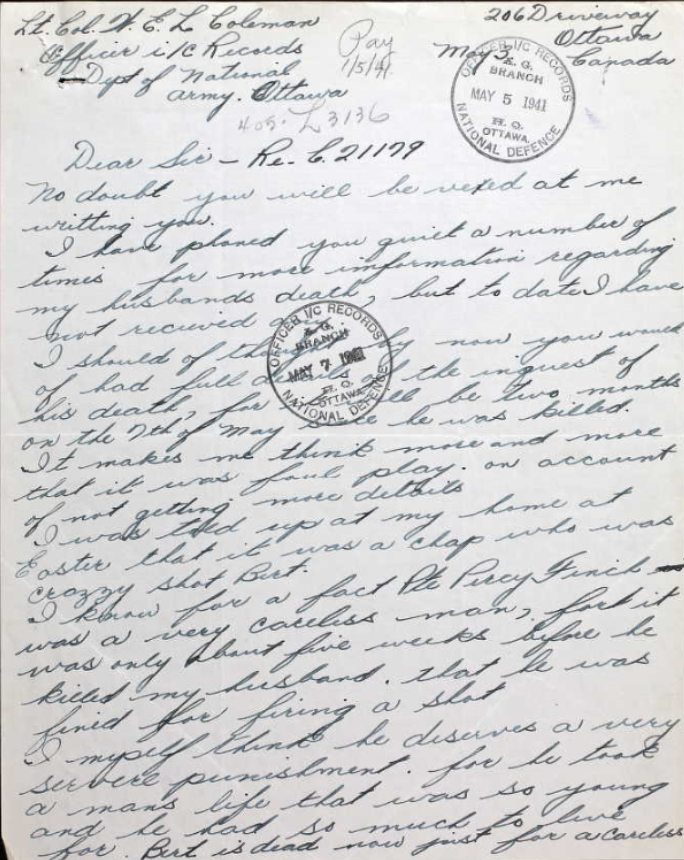 Lt. Col. W. E. L. Coleman
Officer i/c Records
Dept of National
Army. Ottawa
206 Driveway
Ottawa
May 5 Canada
Pay
1/5/41
405-L3136
OFFICER I/C RECORDS
BRANCH
MAY 5 1941
H.Q.
OTTAWA.
NATIONAL DEFENCE
Dear Sir - Re. C. 21179
No doubt you will be vexed at me
writting you.
I have phoned you quiet a number of
times for more imformation regarding
my husbands death, but to date I have
not recieved
I should of by now you would
of had full the inquest of
his death, for be two months
on the 7th of May he was killed.
OFFICER I/C RECORDS
BRANCH
MAY 7 1941
H.Q.
OTTAWA
NATIONAL DEFENCE
It makes me think more and more
that it was foul play. on account
of not getting more details
I was told up at my home at
Easter that it was a chap who was
crazzy shot Bert.
I know for a fact Pte Percy Finch
was a very careless man, for it
was only about five weeks before he
killed my husband. that he was
fined for firing a shot
I myself think he deserves a very
servere punishment. for he took
a mans life that was so young
and he had so much to live
for. Bert is dead now just for a careless